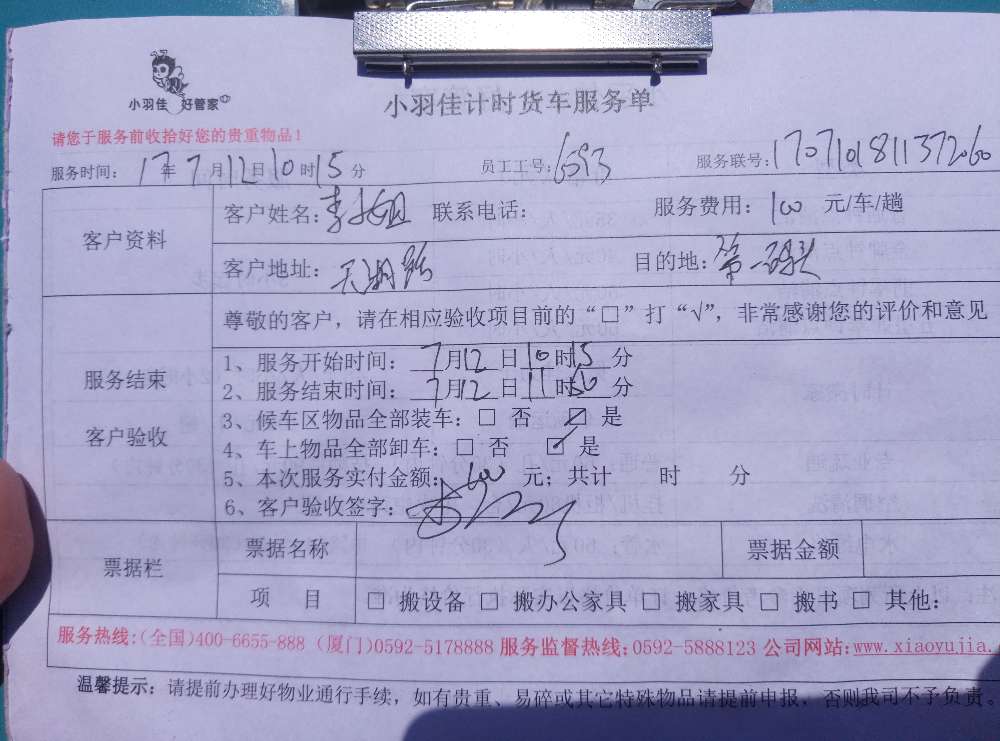 小羽佳 好管家
小羽佳计时货车服务单
请您于服务前收拾好您的贵重物品！
服务时间： 17年7月12日10时15分 员工工号：6593 服务联号：1707101811372060
客户资料
客户姓名：李小姐 联系电话： 服务费用：100 元/车/趟
客户地址：天湖路 目的地：第一码头
服务结束
客户验收
尊敬的客户，请在相应验收项目前的“□”打“√”，非常感谢您的评价和意见
1、服务开始时间： 7月12日10时15分
2、服务结束时间： 7月12日11时50分
3、候车区物品全部装车：□ 否 ☑ 是
4、车上物品全部卸车：□ 否 ☑ 是
5、本次服务实付金额： 元；共计 时 分
6、客户验收签字：
票据栏
票据名称 票据金额
项 目 □ 搬设备 □ 搬办公家具 □ 搬家具 □ 搬书 □ 其他：
服务热线:(全国)400-6655-888 (厦门)0592-5178888 服务监督热线:0592-5888123 公司网站:www.xiaoyujia.
温馨提示：请提前办理好物业通行手续，如有贵重、易碎或其它特殊物品请提前申报，否则我司不予负责。